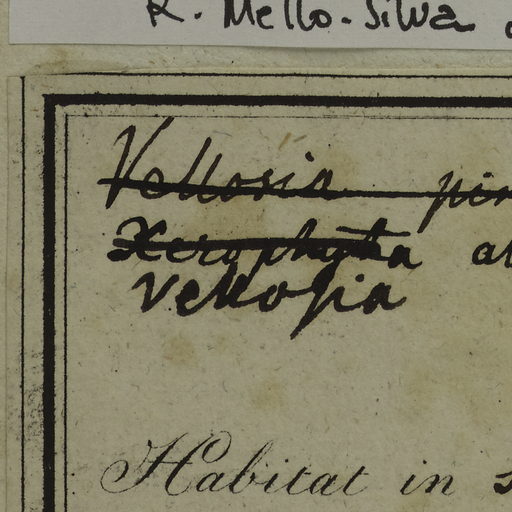 R. Mello-Silva
Vellosia
Xerophyta
Vellosia
Habitat in